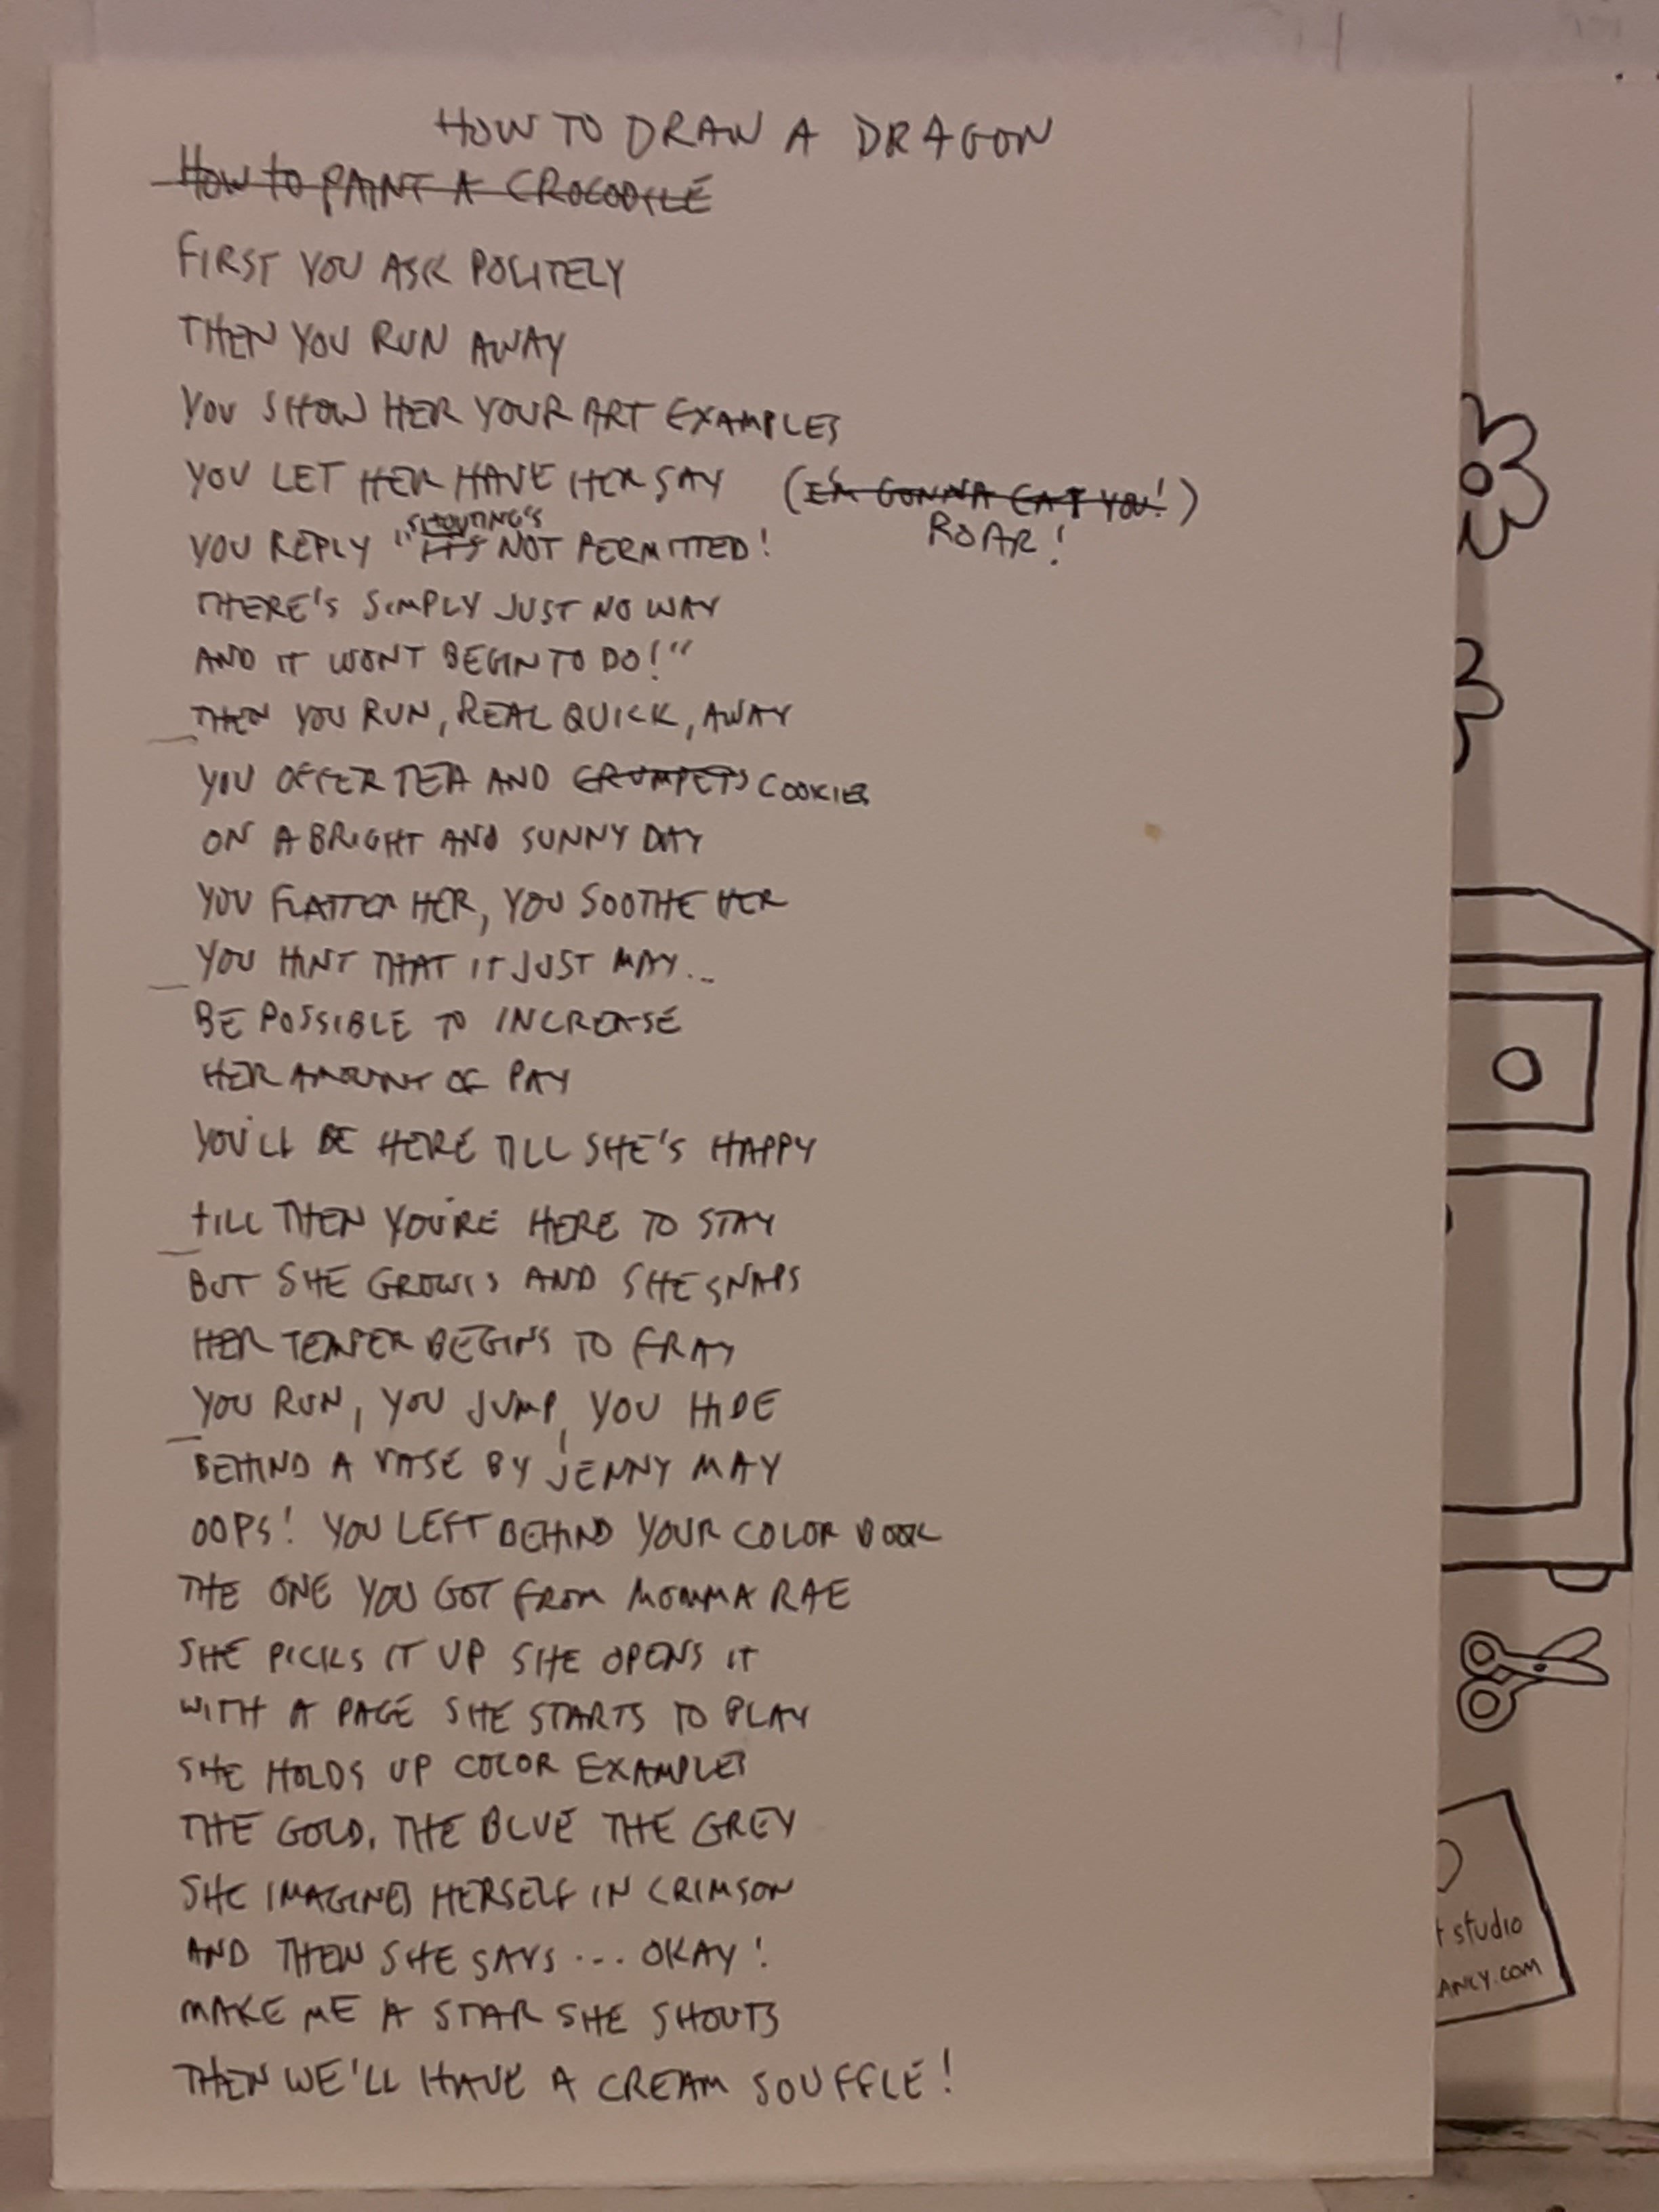 HOW TO DRAW A DRAGON
HOW TO PAINT A CROCODILE
FIRST YOU ASK POLITELY
THEN YOU RUN AWAY
YOU SHOW HER YOUR ART EXAMPLES
YOU LET HER HAVE HER SAY (I'M GONNA EAT YOU!)
ROAR!
SHOUTING'S
YOU REPLY "IT'S NOT PERMITTED!
THERE'S SIMPLY JUST NO WAY
AND IT WONT BEGIN TO DO!"
THEN YOU RUN, REAL QUICK, AWAY
YOU OFFER TEA AND CRUMPETS COOKIES
ON A BRIGHT AND SUNNY DAY
YOU FLATTER HER, YOU SOOTHE HER
YOU HINT THAT IT JUST MAY...
BE POSSIBLE TO INCREASE
HER AMOUNT OF PAY
YOU'LL BE HERE TILL SHE'S HAPPY
TILL THEN YOU'RE HERE TO STAY
BUT SHE GROWLS AND SHE SNAPS
HER TEMPER BEGINS TO FRAY
YOU RUN, YOU JUMP, YOU HIDE
BEHIND A VASE BY JENNY MAY
OOPS! YOU LEFT BEHIND YOUR COLOR BOOK
THE ONE YOU GOT FROM MOMMA RAE
SHE PICKS IT UP SHE OPENS IT
WITH A PAGE SHE STARTS TO PLAY
SHE HOLDS UP COLOR EXAMPLES
THE GOLD, THE BLUE THE GREY
SHE IMAGINES HERSELF IN CRIMSON
AND THEN SHE SAYS ... OKAY!
MAKE ME A STAR SHE SHOUTS
THEN WE'LL HAVE A CREAM SOUFFLÉ!
studio
ANCY.COM